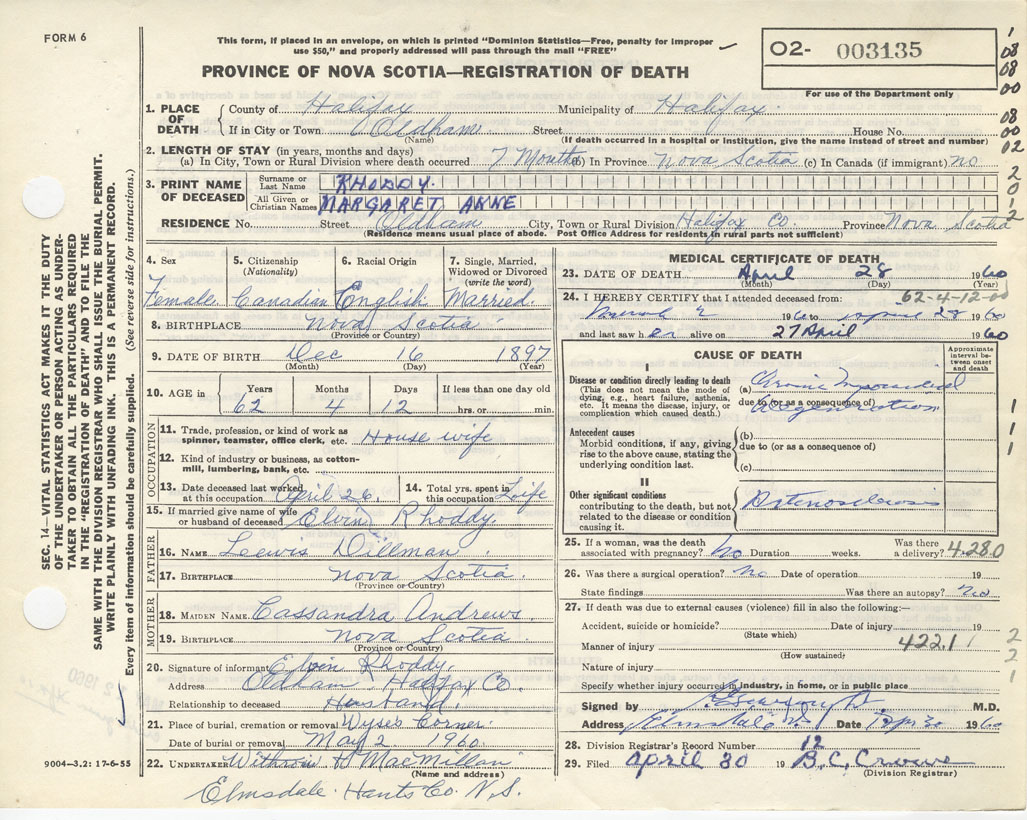 FORM 6
This form, if placed in an envelope, on which is printed "Dominion Statistics—Free, penalty for improper
use $50," and properly addressed will pass through the mail "FREE"
O2- 003135
For use of the Department only
PROVINCE OF NOVA SCOTIA—REGISTRATION OF DEATH
1. PLACE OF DEATH County of Halifax Municipality of Halifax
If in City or Town Oldham Street House No.
(Name) (If death occurred in a hospital or institution, give the name instead of street and number)
2. LENGTH OF STAY (in years, months and days)
(a) In City, Town or Rural Division where death occurred 7 Months (b) In Province Nova Scotia (c) In Canada (if immigrant) no
3. PRINT NAME OF DECEASED Surname or Last Name RHODDY.
All Given or Christian Names MARGARET ANNE
RESIDENCE No. Street Oldham City, Town or Rural Division Halifax Co. Province Nova Scotia
(Residence means usual place of abode. Post Office Address for residents in rural parts not sufficient)
4. Sex 5. Citizenship (Nationality) 6. Racial Origin 7. Single, Married, Widowed or Divorced (write the word)
Female Canadian English Married.
8. BIRTHPLACE Nova Scotia
(Province or Country)
9. DATE OF BIRTH Dec 16 1897
(Month) (Day) (Year)
10. AGE in Years Months Days If less than one day old
62 4 12 hrs. or min.
OCCUPATION
11. Trade, profession, or kind of work as spinner, teamster, office clerk, etc. House wife
12. Kind of industry or business, as cotton-mill, lumbering, bank, etc.
13. Date deceased last worked at this occupation April 26. 14. Total yrs. spent in this occupation Life
15. If married give name of wife or husband of deceased Elvin Rhoddy.
FATHER
16. NAME Leewis Dillman
17. BIRTHPLACE Nova Scotia.
(Province or Country)
MOTHER
18. MAIDEN NAME Cassandra Andrews.
19. BIRTHPLACE Nova Scotia
(Province or Country)
20. Signature of informant Elvin Rhoddy.
Address Oldham. Halifax Co.
Relationship to deceased Husband.
21. Place of burial, cremation or removal Wyses Corner.
Date of burial or removal May 2 1960
22. UNDERTAKER Withrow H MacMillan
(Name and address)
Elmsdale. Hants Co. N.S.
9004—3.2: 17-6-55
MEDICAL CERTIFICATE OF DEATH
23. DATE OF DEATH April 28 1960
(Month) (Day) (Year)
24. I HEREBY CERTIFY that I attended deceased from: 62-4-12-00
1960 to April 28 1960
and last saw her alive on 27 April 1960
CAUSE OF DEATH
Approximate interval between onset and death
I
Disease or condition directly leading to death (a) Chronic Myocardial
(This does not mean the mode of dying, e.g., heart failure, asthenia, etc. It means the disease, injury, or complication which caused death.)
due to (or as a consequence of) degeneration
Antecedent causes
Morbid conditions, if any, giving rise to the above cause, stating the underlying condition last.
(b)
due to (or as a consequence of)
(c)
II
Other significant conditions
contributing to the death, but not related to the disease or condition causing it.
25. If a woman, was the death associated with pregnancy? No Duration weeks. Was there a delivery? 4-28-0
26. Was there a surgical operation? no Date of operation 19
State findings Was there an autopsy? no
27. If death was due to external causes (violence) fill in also the following:—
Accident, suicide or homicide? Date of injury 19
(State which)
Manner of injury 422.1
(How sustained)
Nature of injury
Specify whether injury occurred in industry, in home, or in public place
Signed by M.D.
Address Elmsdale N.S. Date Apr 30 1960
28. Division Registrar's Record Number 12
29. Filed April 30 19 B.C. Crowe
(Division Registrar)
SEC. 14—VITAL STATISTICS ACT MAKES IT THE DUTY
OF THE UNDERTAKER OR PERSON ACTING AS UNDER-
TAKER TO OBTAIN ALL THE PARTICULARS REQUIRED
IN THE "REGISTRATION OF DEATH" AND TO FILE THE
SAME WITH THE DIVISION REGISTRAR WHO SHALL ISSUE THE BURIAL PERMIT.
WRITE PLAINLY WITH UNFADING INK. THIS IS A PERMANENT RECORD.
Every item of information should be carefully supplied. (See reverse side for instructions.)
1
08
08
00
08
00
02
2
0
1
2
1
1
1
2
2
1